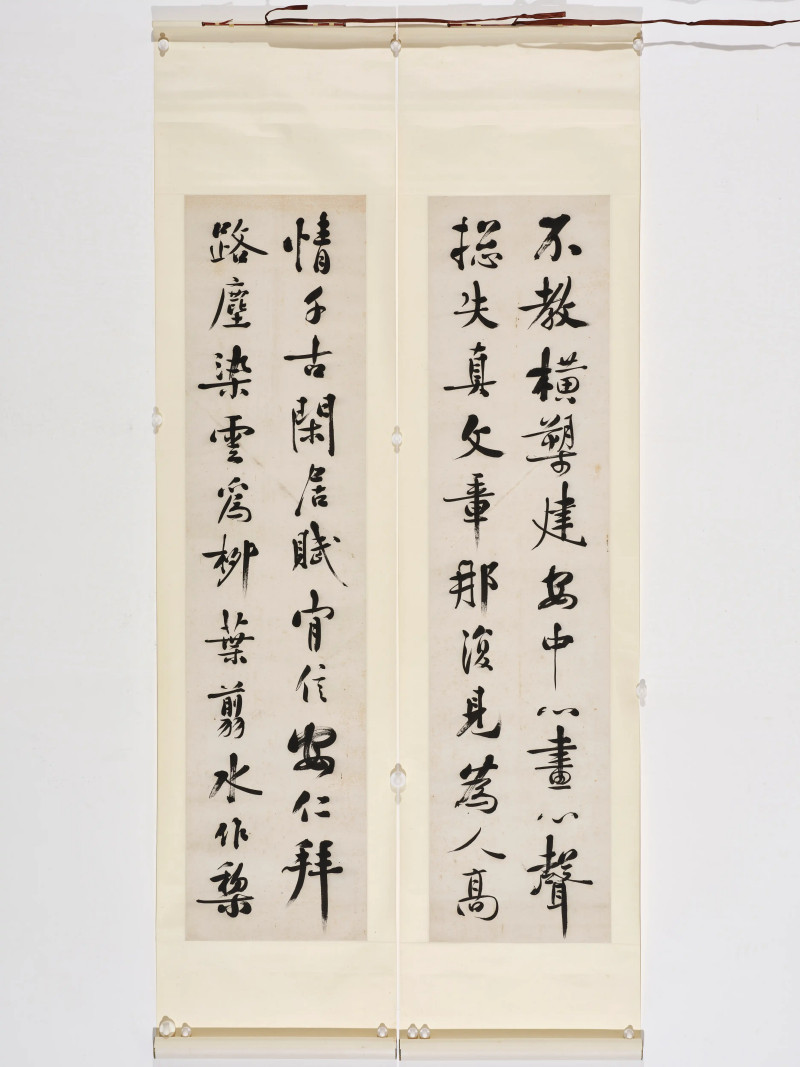 不教橫槊建安中心畫心聲
揔失真文章那復見為人高
情千古閑居賦肎信安仁拜
路塵染雲爲柳葉翦水作棃